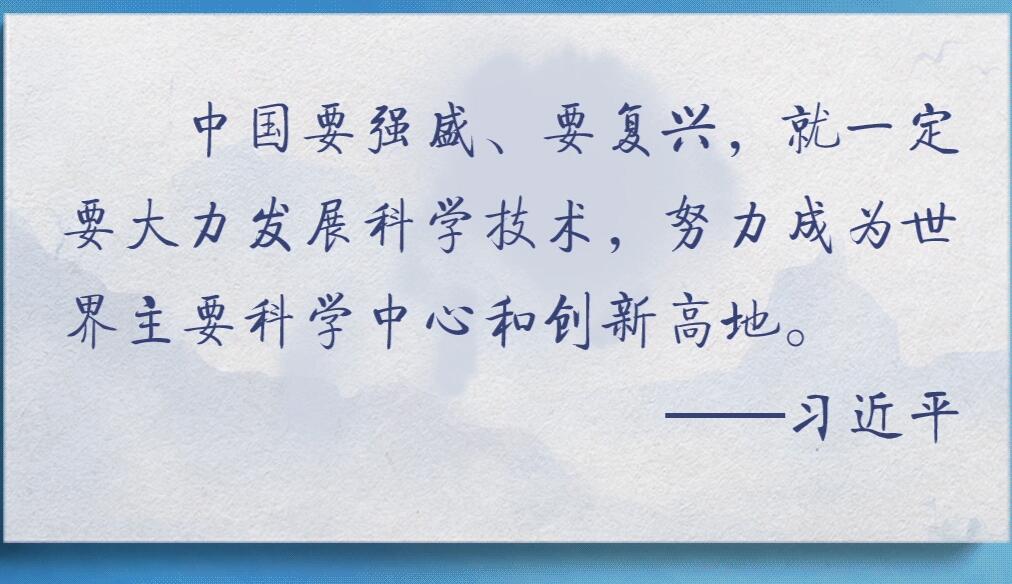 中国要强盛、要复兴，就一定
要大力发展科学技术，努力成为世
界主要科学中心和创新高地。
——习近平